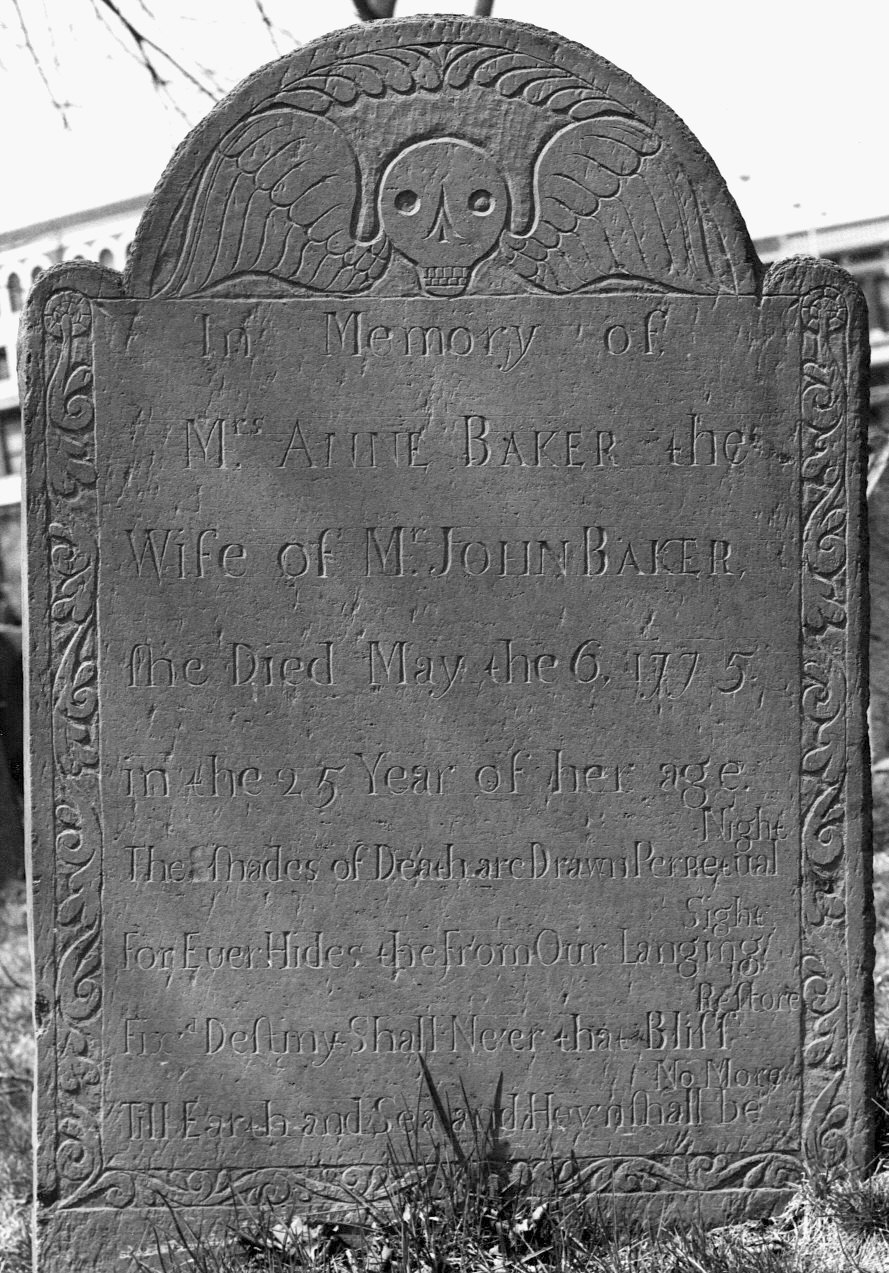 In Memory of
Mrs. ANNE BAKER the
Wife of Mr. JOHN BAKER,
ſhe Died May the 6, 1775,
in the 25 Year of her age.
Night
The Shades of Death are Drawn Perpetual
Sight
For Euer Hides the From Our Langing
Reſtore
Fix'd Deſtiny Shall Never that Bliſſ
No More
Till Earth and Sea and Hevn ſhall be